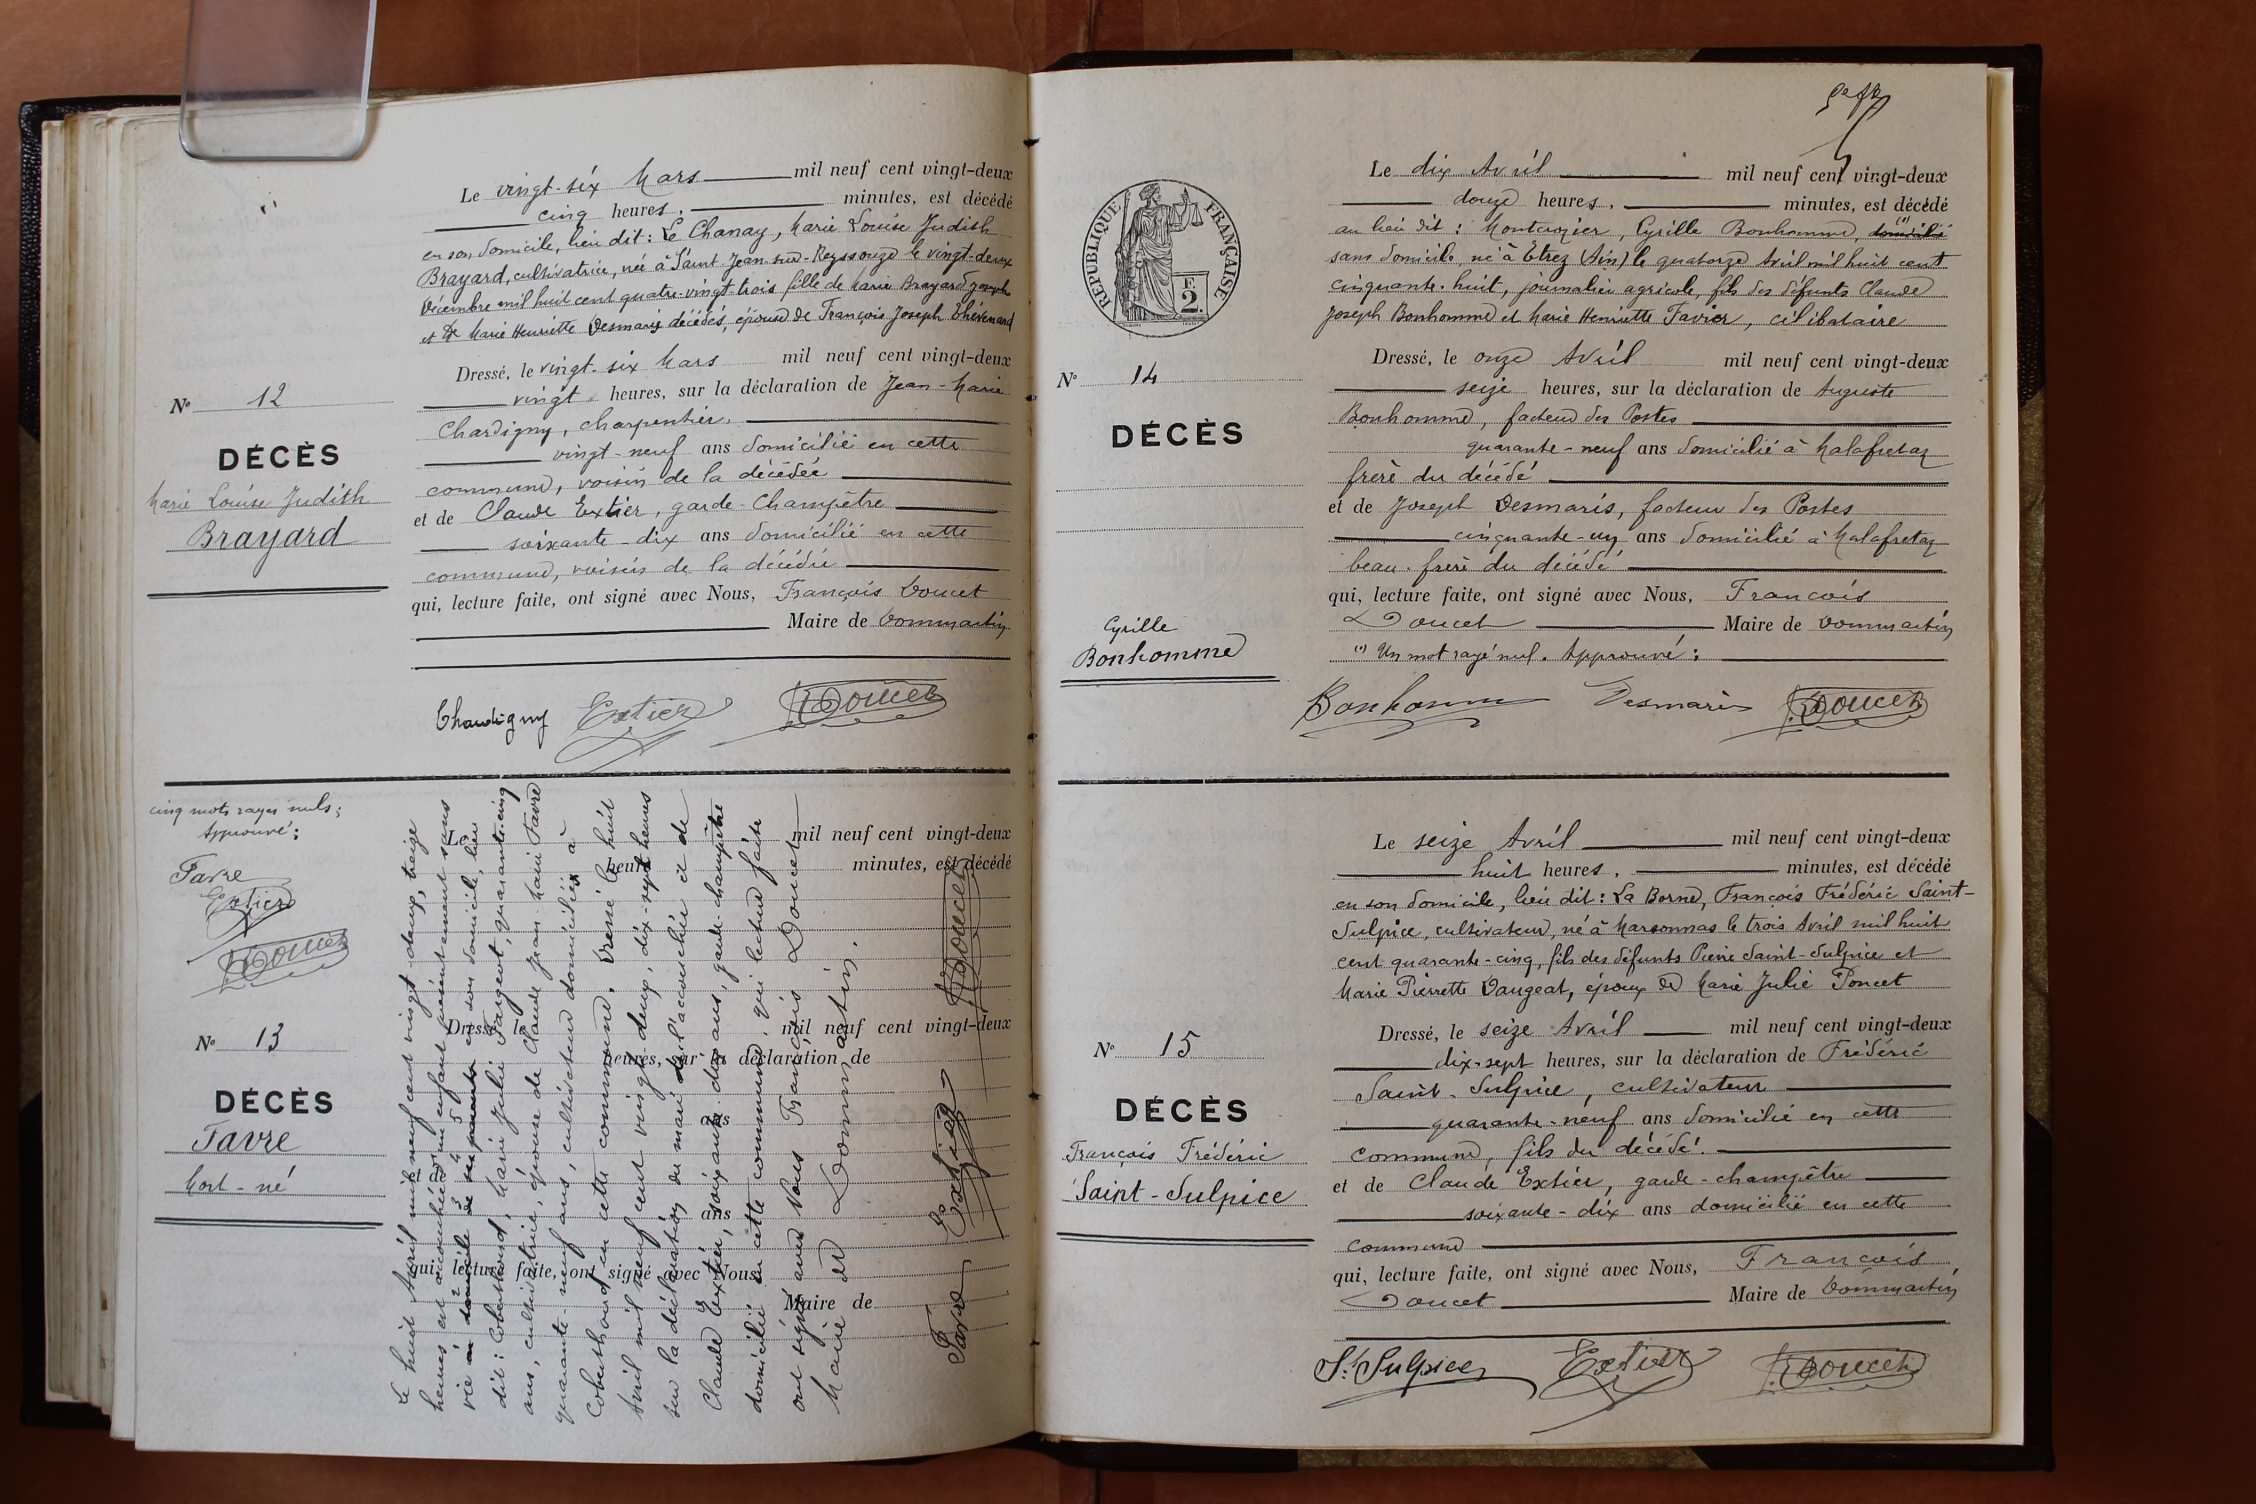 Le vingt-six Mars mil neuf cent vingt-deux
cinq heures, minutes, est décédé
en son domicile, lieu dit : Le Chanay, Marie Louise Judith
Brayard, cultivatrice, née à Saint Jean-sur-Reyssouze le vingt-deux
Décembre mil huit cent quatre-vingt trois fille de Marie Brayard Joseph
et de Marie Henriette Desmaris décédés, épouse de François Joseph Thévenard
Dressé, le vingt-six Mars mil neuf cent vingt-deux
vingt heures, sur la déclaration de Jean-Marie
Chardigny, charpentier,
vingt-neuf ans domicilié en cette
commune, voisin de la décédée
et de Claude Extier, garde-Champêtre
soixante-dix ans domicilié en cette
commune, voisin de la décédée
qui, lecture faite, ont signé avec Nous, François Doucet
Maire de Dommartin
N° 12
DÉCÈS
Marie Louise Judith
Brayard
Chardigny Extier Doucet
cinq mots rayés nuls;
Approuvé :
Favre
Extier
Doucet
N° 13
DÉCÈS
Favre
Mort-né
Le mil neuf cent vingt-deux
heures minutes, est décédé
Dressé, le mil neuf cent vingt-deux
heures, sur la déclaration de
ans
et de
ans
qui, lecture faite, ont signé avec Nous
Maire de
Le huit Avril mil neuf cent vingt-deux, treize
heures est accouchée d'un enfant présentement sans
vie en son domicile, lieu
dit : Coberthoud, Marie Julie Fargeot, quarante-cinq
ans, cultivatrice, épouse de Claude Jean-Marie Favre
quarante-neuf ans, cultivateur domiciliés à
Coberthoud en cette commune. Dressé le huit
Avril mil neuf cent vingt-deux, dix-sept heures
sur la déclaration du mari de l'accouchée et de
Claude Extier, soixante-dix ans, garde-champêtre
domicilié en cette commune, qui lecture faite
ont signé avec Nous François Doucet
Maire de Dommartin.
Favre Extier Doucet
RÉPUBLIQUE FRANÇAISE
F.
2.
Le dix Avril mil neuf cent vingt-deux
douze heures, minutes, est décédé
au lieu dit : Montcrozier, Cyrille Bonhomme, domicilié (1)
sans domicile, né à Etrez (Ain) le quatorze Avril mil huit cent
cinquante-huit, journalier agricole, fils des défunts Claude
Joseph Bonhomme et Marie Henriette Favier, célibataire
Dressé, le onze Avril mil neuf cent vingt-deux
seize heures, sur la déclaration de Auguste
Bonhomme, facteur des Postes
quarante-neuf ans domicilié à Malafretaz
frère du décédé
et de Joseph Desmaris, facteur des Postes
cinquante-un ans domicilié à Malafretaz
beau-frère du décédé
qui, lecture faite, ont signé avec Nous, François
Doucet Maire de Dommartin
(1) Un mot rayé nul. Approuvé :
N° 14
DÉCÈS
Cyrille
Bonhomme
Bonhomme Desmaris Doucet
Le seize Avril mil neuf cent vingt-deux
huit heures, minutes, est décédé
en son domicile, lieu dit : La Borne, François Frédéric Saint-
Sulpice, cultivateur, né à Marsonnas le trois Avril mil huit
cent quarante-cinq, fils des défunts Pierre Saint-Sulpice et
Marie Pierrette Dangeat, époux de Marie Julie Poncet
Dressé, le seize Avril mil neuf cent vingt-deux
dix-sept heures, sur la déclaration de Frédéric
Saint-Sulpice, cultivateur
quarante-neuf ans domicilié en cette
commune, fils du décédé.
et de Claude Extier, garde-champêtre
soixante-dix ans domicilié en cette
commune
qui, lecture faite, ont signé avec Nous, François
Doucet Maire de Dommartin
N° 15
DÉCÈS
François Frédéric
Saint-Sulpice
St Sulpice Extier Doucet